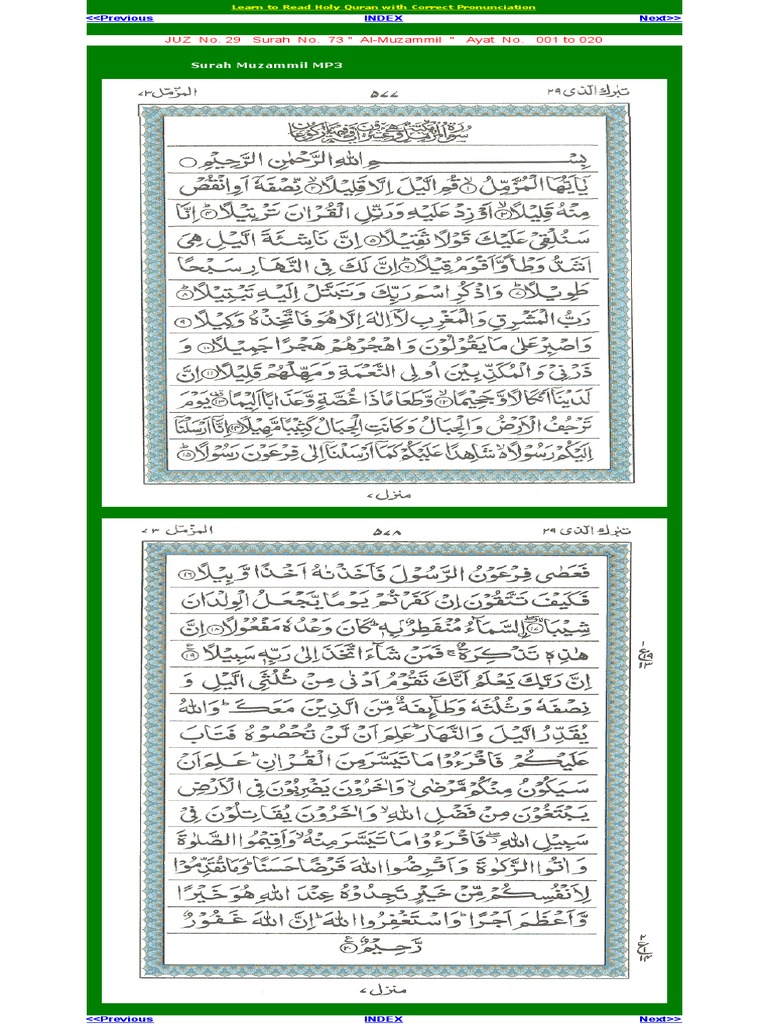 Learn to Read Holy Quran with Correct Pronunciation
<<Previous INDEX Next>>
JUZ No. 29 Surah No. 73 " Al-Muzammil " Ayat No. 001 to 020
Surah Muzammil MP3
تبرك الذی ۲۹ ۵۷۷ المزمل ۷۳
بِسْمِ اللهِ الرَّحْمٰنِ الرَّحِيْمِ
يٰۤاَيُّهَا الْمُزَّمِّلُ ۱ قُمِ الَّيْلَ اِلَّا قَلِيْلًا ۲ نِّصْفَهٗۤ اَوِ انْقُصْ
مِنْهُ قَلِيْلًا ۳ اَوْ زِدْ عَلَيْهِ وَرَتِّلِ الْقُرْاٰنَ تَرْتِيْلًا ۴ اِنَّا
سَنُلْقِيْ عَلَيْكَ قَوْلًا ثَقِيْلًا ۵ اِنَّ نَاشِئَةَ الَّيْلِ هِيَ
اَشَدُّ وَطْاً وَّاَقْوَمُ قِيْلًا ۶ اِنَّ لَكَ فِي النَّهَارِ سَبْحًا
طَوِيْلًا ۷ وَاذْكُرِ اسْمَ رَبِّكَ وَتَبَتَّلْ اِلَيْهِ تَبْتِيْلًا ۸
رَبُّ الْمَشْرِقِ وَالْمَغْرِبِ لَاۤ اِلٰهَ اِلَّا هُوَ فَاتَّخِذْهُ وَكِيْلًا ۹
وَاصْبِرْ عَلٰى مَا يَقُوْلُوْنَ وَاهْجُرْهُمْ هَجْرًا جَمِيْلًا ۱۰ وَ
ذَرْنِيْ وَالْمُكَذِّبِيْنَ اُولِي النَّعْمَةِ وَمَهِّلْهُمْ قَلِيْلًا ۱۱ اِنَّ
لَدَيْنَاۤ اَنْكَالًا وَّجَحِيْمًا ۱۲ وَّطَعَامًا ذَا غُصَّةٍ وَّعَذَابًا اَلِيْمًا ۱۳ يَوْمَ
تَرْجُفُ الْاَرْضُ وَالْجِبَالُ وَكَانَتِ الْجِبَالُ كَثِيْبًا مَّهِيْلًا ۱۴ اِنَّاۤ اَرْسَلْنَاۤ
اِلَيْكُمْ رَسُوْلًا شَاهِدًا عَلَيْكُمْ كَمَاۤ اَرْسَلْنَاۤ اِلٰى فِرْعَوْنَ رَسُوْلًا ۱۵
منزل ۷
تبرك الذی ۲۹ ۵۷۸ المزمل ۷۳
فَعَصٰى فِرْعَوْنُ الرَّسُوْلَ فَاَخَذْنٰهُ اَخْذًا وَّبِيْلًا ۱۶
فَكَيْفَ تَتَّقُوْنَ اِنْ كَفَرْتُمْ يَوْمًا يَّجْعَلُ الْوِلْدَانَ
شِيْبًا ۱۷ السَّمَآءُ مُنْفَطِرٌۢ بِهٖ كَانَ وَعْدُهٗ مَفْعُوْلًا ۱۸ اِنَّ
هٰذِهٖ تَذْكِرَةٌ فَمَنْ شَآءَ اتَّخَذَ اِلٰى رَبِّهٖ سَبِيْلًا ۱۹
اِنَّ رَبَّكَ يَعْلَمُ اَنَّكَ تَقُوْمُ اَدْنٰى مِنْ ثُلُثَيِ الَّيْلِ وَ
نِصْفَهٗ وَثُلُثَهٗ وَطَآئِفَةٌ مِّنَ الَّذِيْنَ مَعَكَ وَاللهُ
يُقَدِّرُ الَّيْلَ وَالنَّهَارَ عَلِمَ اَنْ لَّنْ تُحْصُوْهُ فَتَابَ
عَلَيْكُمْ فَاقْرَءُوْا مَا تَيَسَّرَ مِنَ الْقُرْاٰنِ عَلِمَ اَنْ
سَيَكُوْنُ مِنْكُمْ مَّرْضٰى وَاٰخَرُوْنَ يَضْرِبُوْنَ فِي الْاَرْضِ
يَبْتَغُوْنَ مِنْ فَضْلِ اللهِ وَاٰخَرُوْنَ يُقَاتِلُوْنَ فِيْ
سَبِيْلِ اللهِ فَاقْرَءُوْا مَا تَيَسَّرَ مِنْهُ وَاَقِيْمُوا الصَّلٰوةَ
وَاٰتُوا الزَّكٰوةَ وَاَقْرِضُوا اللهَ قَرْضًا حَسَنًا وَمَا تُقَدِّمُوْا
لِاَنْفُسِكُمْ مِّنْ خَيْرٍ تَجِدُوْهُ عِنْدَ اللهِ هُوَ خَيْرًا
وَّاَعْظَمَ اَجْرًا وَاسْتَغْفِرُوا اللهَ اِنَّ اللهَ غَفُوْرٌ
رَّحِيْمٌ ۲۰
منزل ۷
<<Previous INDEX Next>>